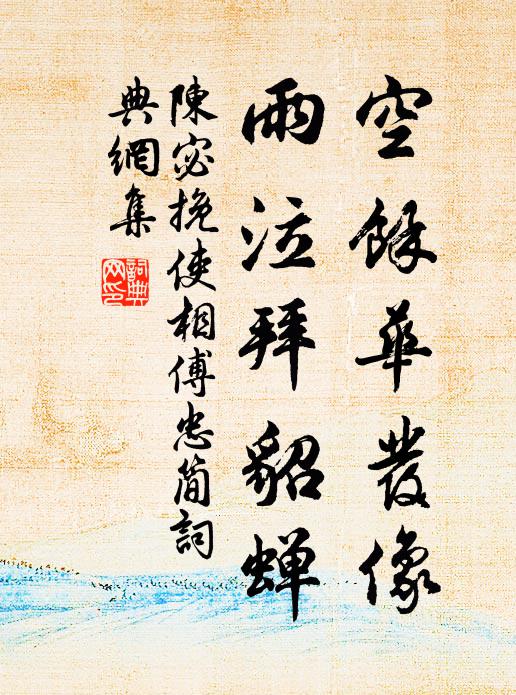 空餘華發像
雨泣拜貂蟬
陳宓挽使相傅忠簡詞
典網集
詞典
网印